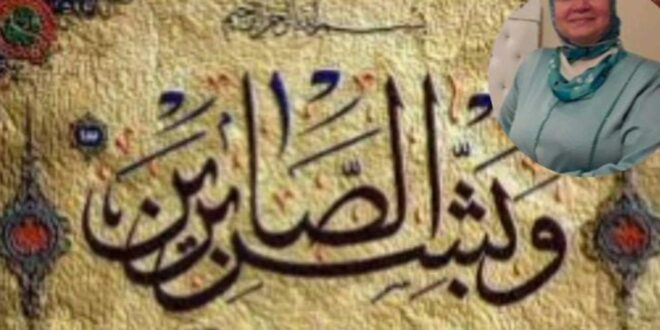 بسم الله الرحمن الرحيم
وَبَشِّرِ الصَّابِرِينَ